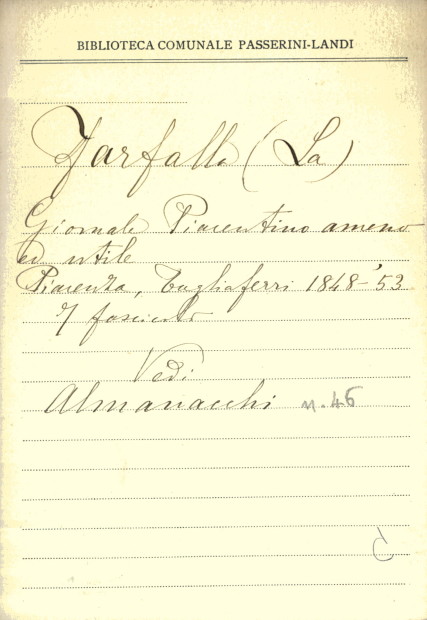 BIBLIOTECA COMUNALE PASSERINI-LANDI
Farfalla (La)
Giornale Piacentino ameno
ed utile
Piacenza, Tagliaferri 1848-'53
7 fascicolo
Vedi
Almanacchi n. 46
C